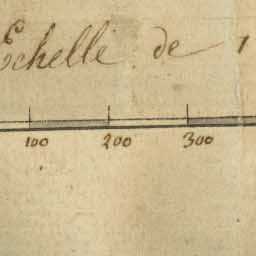 Echelle de 1
100 200 300